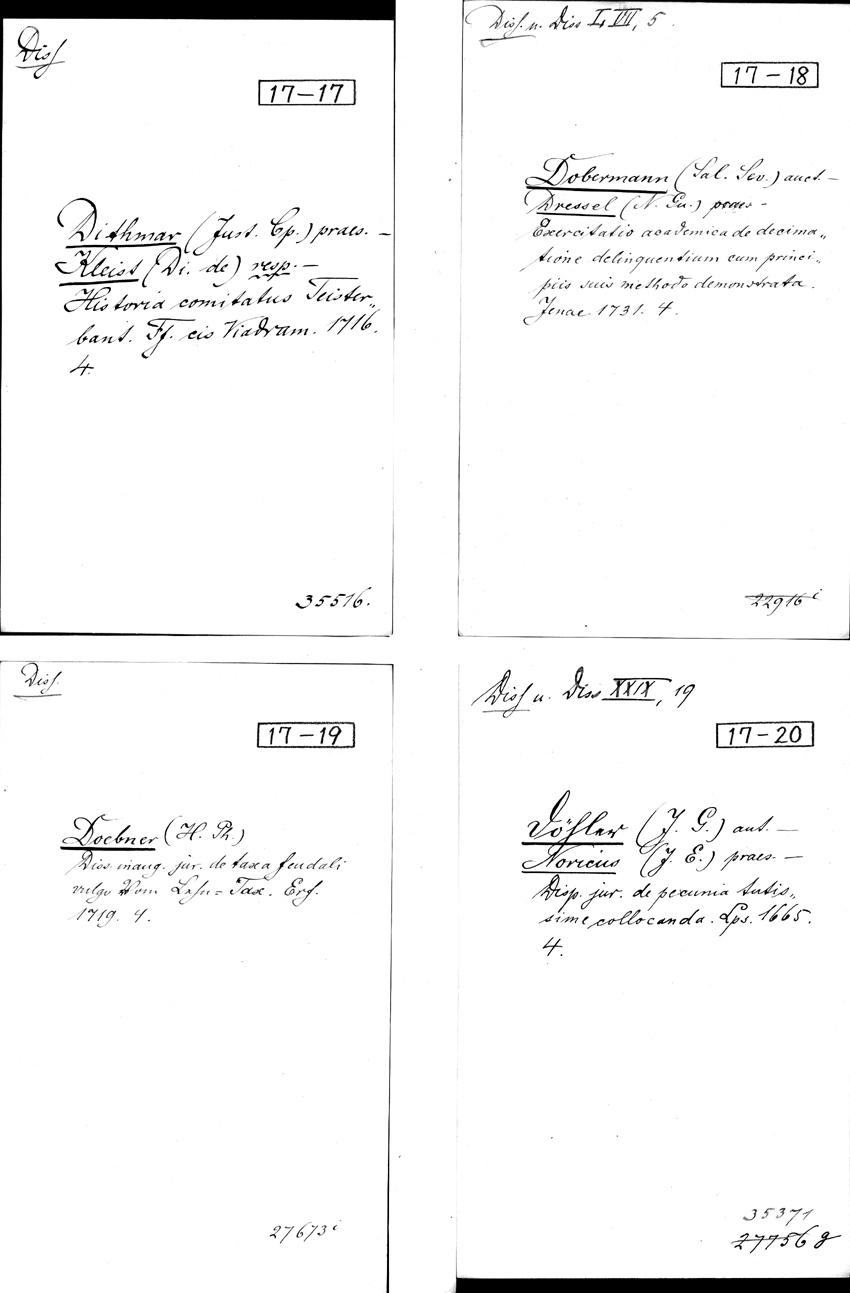 Diss
17-17
Dithmar (Just. Cp.) praes. –
Kleist (Di. de) resp. –
Historia comitatus Teister„
bant. Ff. cis Viadram. 1716.
4.
35516.
Diss. u. Diss L, VII, 5.
17-18
Dobermann (Sal. Sev.) auct. –
Dressel (N. Gu.) praes –
Exercitatio academica de decima„
tione delinquentium cum princi„
piis suis methodo demonstrata.
Jenae 1731. 4.
22916 i
Diss.
17-19
Doebner (H. Ph.)
Diss. inaug. jur. de taxa feudali
vulgo Vom Lehn=Tax. Erf.
1719. 4.
27673 i
Diss u. Diss XXIX, 19
17-20
Döhler (J. G.) aut. –
Noricus (J. E.) praes. –
Disp. jur. de pecunia tutis„
sime collocanda. Lps. 1665.
4.
35371
27756 g